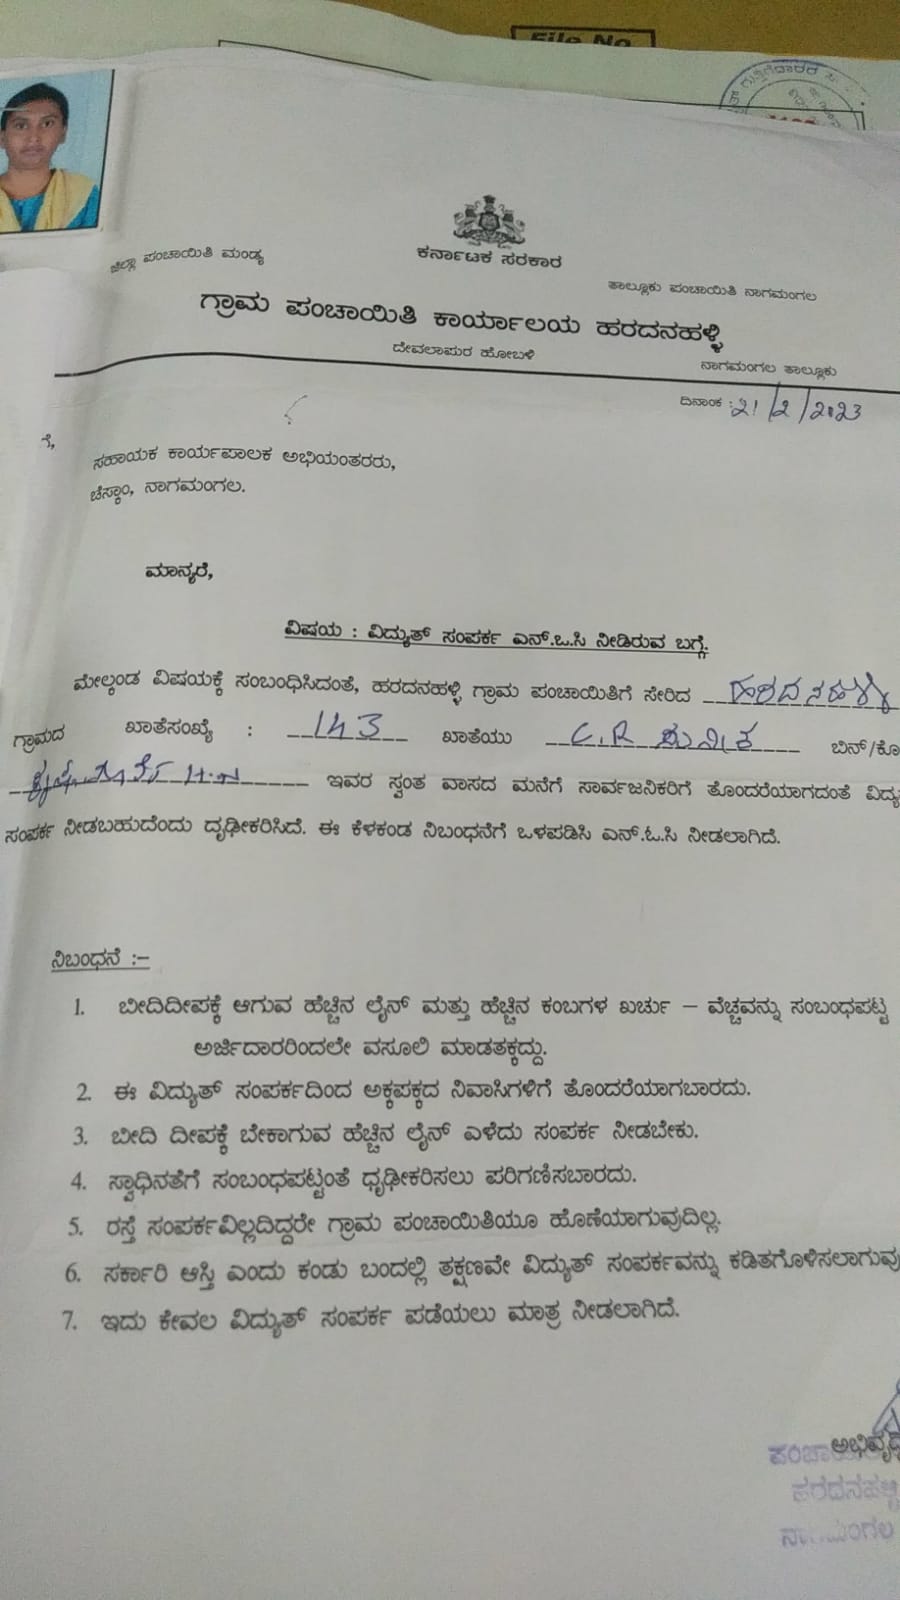 File No
ಗುತ್ತಿಗೆದಾರರ
ಜಿಲ್ಲಾ ಪಂಚಾಯಿತಿ ಮಂಡ್ಯ
ಕರ್ನಾಟಕ ಸರಕಾರ
ತಾಲ್ಲೂಕು ಪಂಚಾಯಿತಿ ನಾಗಮಂಗಲ
ಗ್ರಾಮ ಪಂಚಾಯಿತಿ ಕಾರ್ಯಾಲಯ ಹರದನಹಳ್ಳಿ
ದೇವಲಾಪುರ ಹೋಬಳಿ
ನಾಗಮಂಗಲ ತಾಲ್ಲೂಕು
ದಿನಾಂಕ : 21/2/2023
ಗೆ,
ಸಹಾಯಕ ಕಾರ್ಯಪಾಲಕ ಅಭಿಯಂತರರು,
ಚೆಸ್ಕಾಂ, ನಾಗಮಂಗಲ.
ಮಾನ್ಯರೆ,
ವಿಷಯ : ವಿದ್ಯುತ್ ಸಂಪರ್ಕ ಎನ್.ಒ.ಸಿ ನೀಡಿರುವ ಬಗ್ಗೆ.
ಮೇಲ್ಕಂಡ ವಿಷಯಕ್ಕೆ ಸಂಬಂಧಿಸಿದಂತೆ, ಹರದನಹಳ್ಳಿ ಗ್ರಾಮ ಪಂಚಾಯಿತಿಗೆ ಸೇರಿದ ಹರದನಹಳ್ಳಿ
ಗ್ರಾಮದ ಖಾತೆಸಂಖ್ಯೆ : 143 ಖಾತೆಯು C.R ಬಿನ್/ಕೋ
ಇವರ ಸ್ವಂತ ವಾಸದ ಮನೆಗೆ ಸಾರ್ವಜನಿಕರಿಗೆ ತೊಂದರೆಯಾಗದಂತೆ ವಿದ್ಯು
ಸಂಪರ್ಕ ನೀಡಬಹುದೆಂದು ದೃಢೀಕರಿಸಿದೆ. ಈ ಕೆಳಕಂಡ ನಿಬಂಧನೆಗೆ ಒಳಪಡಿಸಿ ಎನ್.ಓ.ಸಿ ನೀಡಲಾಗಿದೆ.
ನಿಬಂಧನೆ :-
1. ಬೀದಿದೀಪಕ್ಕೆ ಆಗುವ ಹೆಚ್ಚಿನ ಲೈನ್ ಮತ್ತು ಹೆಚ್ಚಿನ ಕಂಬಗಳ ಖರ್ಚು – ವೆಚ್ಚವನ್ನು ಸಂಬಂಧಪಟ್ಟ
ಅರ್ಜಿದಾರರಿಂದಲೇ ವಸೂಲಿ ಮಾಡತಕ್ಕದ್ದು.
2. ಈ ವಿದ್ಯುತ್ ಸಂಪರ್ಕದಿಂದ ಅಕ್ಕಪಕ್ಕದ ನಿವಾಸಿಗಳಿಗೆ ತೊಂದರೆಯಾಗಬಾರದು.
3. ಬೀದಿ ದೀಪಕ್ಕೆ ಬೇಕಾಗುವ ಹೆಚ್ಚಿನ ಲೈನ್ ಎಳೆದು ಸಂಪರ್ಕ ನೀಡಬೇಕು.
4. ಸ್ವಾಧಿನತೆಗೆ ಸಂಬಂಧಪಟ್ಟಂತೆ ಧೃಢೀಕರಿಸಲು ಪರಿಗಣಿಸಬಾರದು.
5. ರಸ್ತೆ ಸಂಪರ್ಕವಿಲ್ಲದಿದ್ದರೇ ಗ್ರಾಮ ಪಂಚಾಯಿತಿಯೂ ಹೊಣೆಯಾಗುವುದಿಲ್ಲ.
6. ಸರ್ಕಾರಿ ಆಸ್ತಿ ಎಂದು ಕಂಡು ಬಂದಲ್ಲಿ ತಕ್ಷಣವೇ ವಿದ್ಯುತ್ ಸಂಪರ್ಕವನ್ನು ಕಡಿತಗೊಳಿಸಲಾಗುವು
7. ಇದು ಕೇವಲ ವಿದ್ಯುತ್ ಸಂಪರ್ಕ ಪಡೆಯಲು ಮಾತ್ರ ನೀಡಲಾಗಿದೆ.
ಪಂಚಾ ಅಭಿವೃದ್ಧಿ
ಹರದನಹಳ್ಳಿ